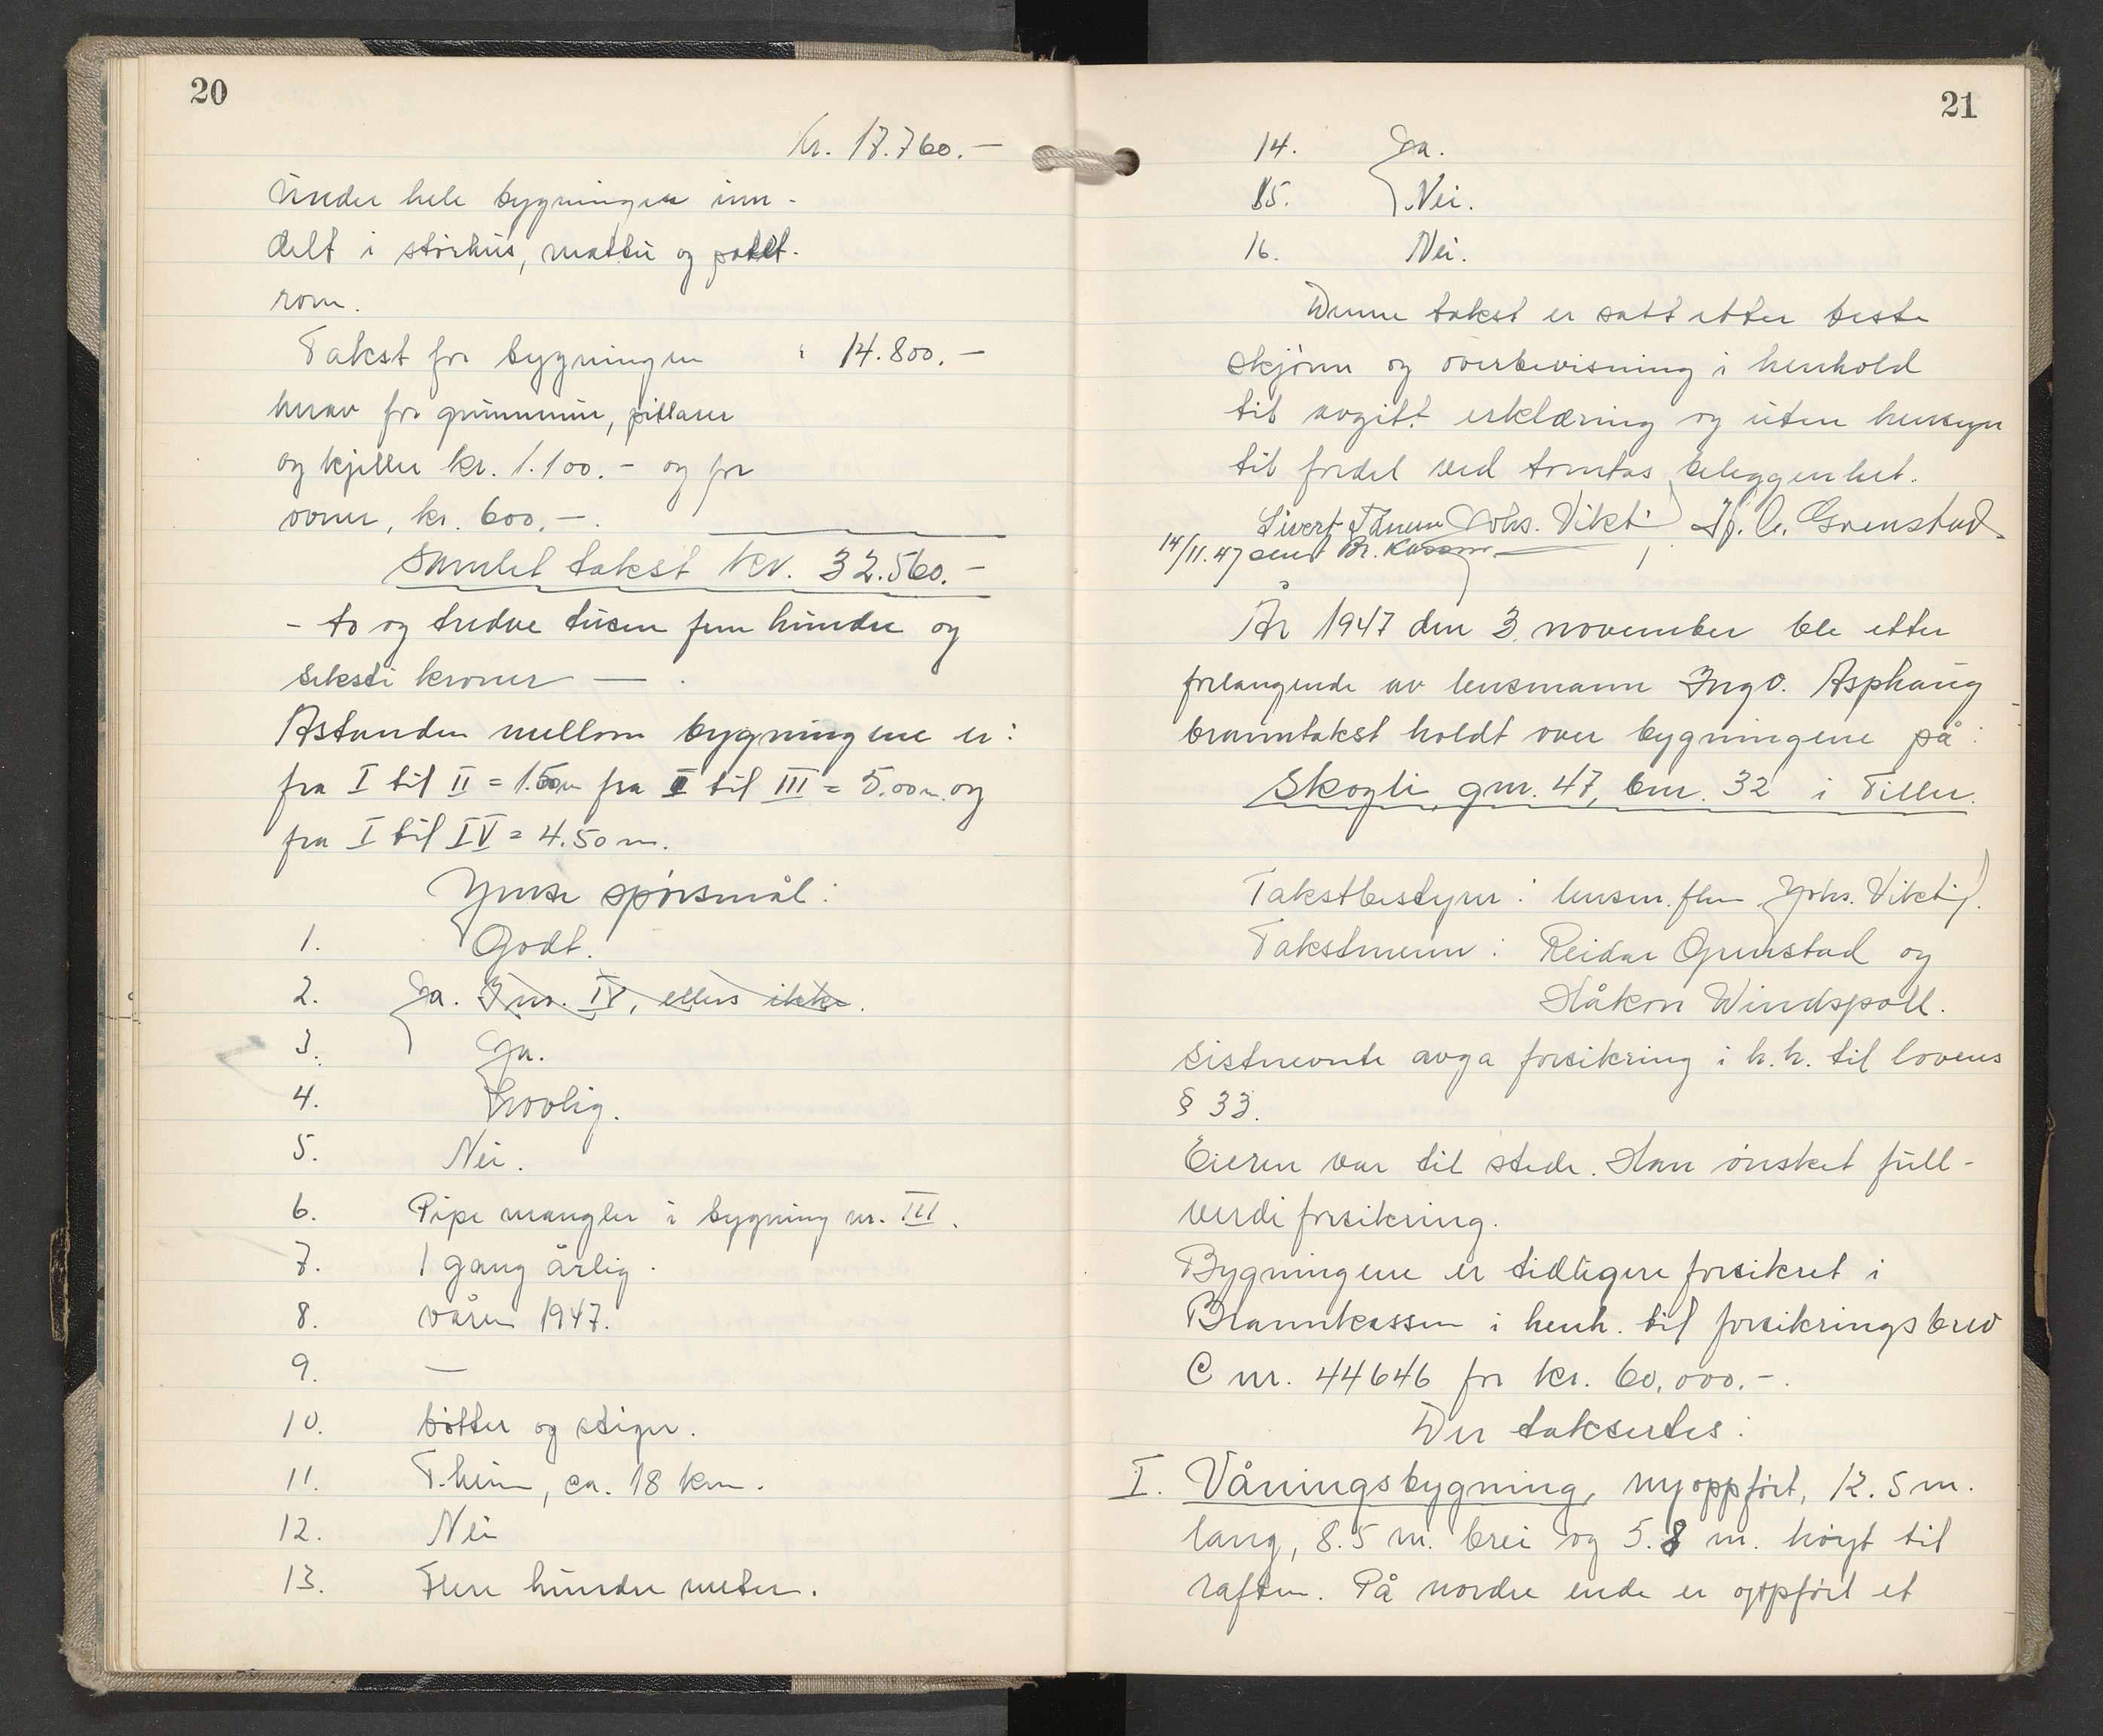 20
Kr. 17.760.-
Under hele bygningen inn-
delt i störhus, matbu og potet-
rom.
Takst for bygningen " 14.800.-
herav for grunnmur, pillarer
og kjeller kr. 1.100.- og for
ovner, kr. 600.-.
Samlet takst kr. 32.560.-
- to og tredve tusen fem hundre og
seksti kroner -.
Avstanden mellom bygningene er:
fra I til II = 1.50 m fra I til III = 5.00 m. og
fra I til IV = 4.50 m.
Ymse spörsmål:
1. Godt.
2. Ja. I nr. IV, ellers ikke.
3. Ja.
4. Lovlig.
5. Nei.
6. Pipe mangler i bygning nr. III.
7. 1 gang årlig.
8. våren 1947.
9. —
10. bötter og stiger.
11. T.heim, ca. 18 km.
12. Nei
13. Flere hundre meter.
21
14. Ja.
15. Nei.
16. Nei.
Denne takst er satt etter beste
skjönn og overbevisning i henhold
til avgitt erklæring og uten hensyn
til fordel ved tomtas beleggenhet.
Sivert Tanem Johs. Vikti Grenstad
14/11.47 sendt Br. Kassen
År 1947 den 3. november ble etter
forlangende av lensmann Ingv. Asphaug
branntakst holdt over bygningene på:
Skogli gnr. 47, bnr. 32 i Tiller.
Takstbestyrer: lensm.flm Johs. Vikti.
Takstmenn: Reidar Grenstad og
Håkon Windspoll.
Sistnevnte avga forsikring i h.h. til lovens
§ 33.
Eieren var til stede. Han önsket full-
verdiforsikring.
Bygningene er tidligere forsikret i
Brannkassen i henh. til forsikringsbrev
C nr. 44646 for kr. 60.000.-.
Der taksertes:
I. Våningsbygning, nyoppfört, 12.5 m.
lang, 8.5 m. brei og 5.8 m. höyt til
raften. På nordre ende er oppfört et